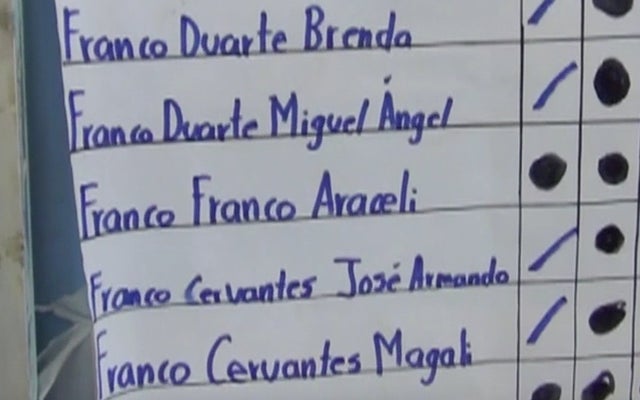 Franco Duarte Brenda
Franco Duarte Miguel Ángel
Franco Franco Araceli
Franco Cervantes José Armando
Franco Cervantes Magali